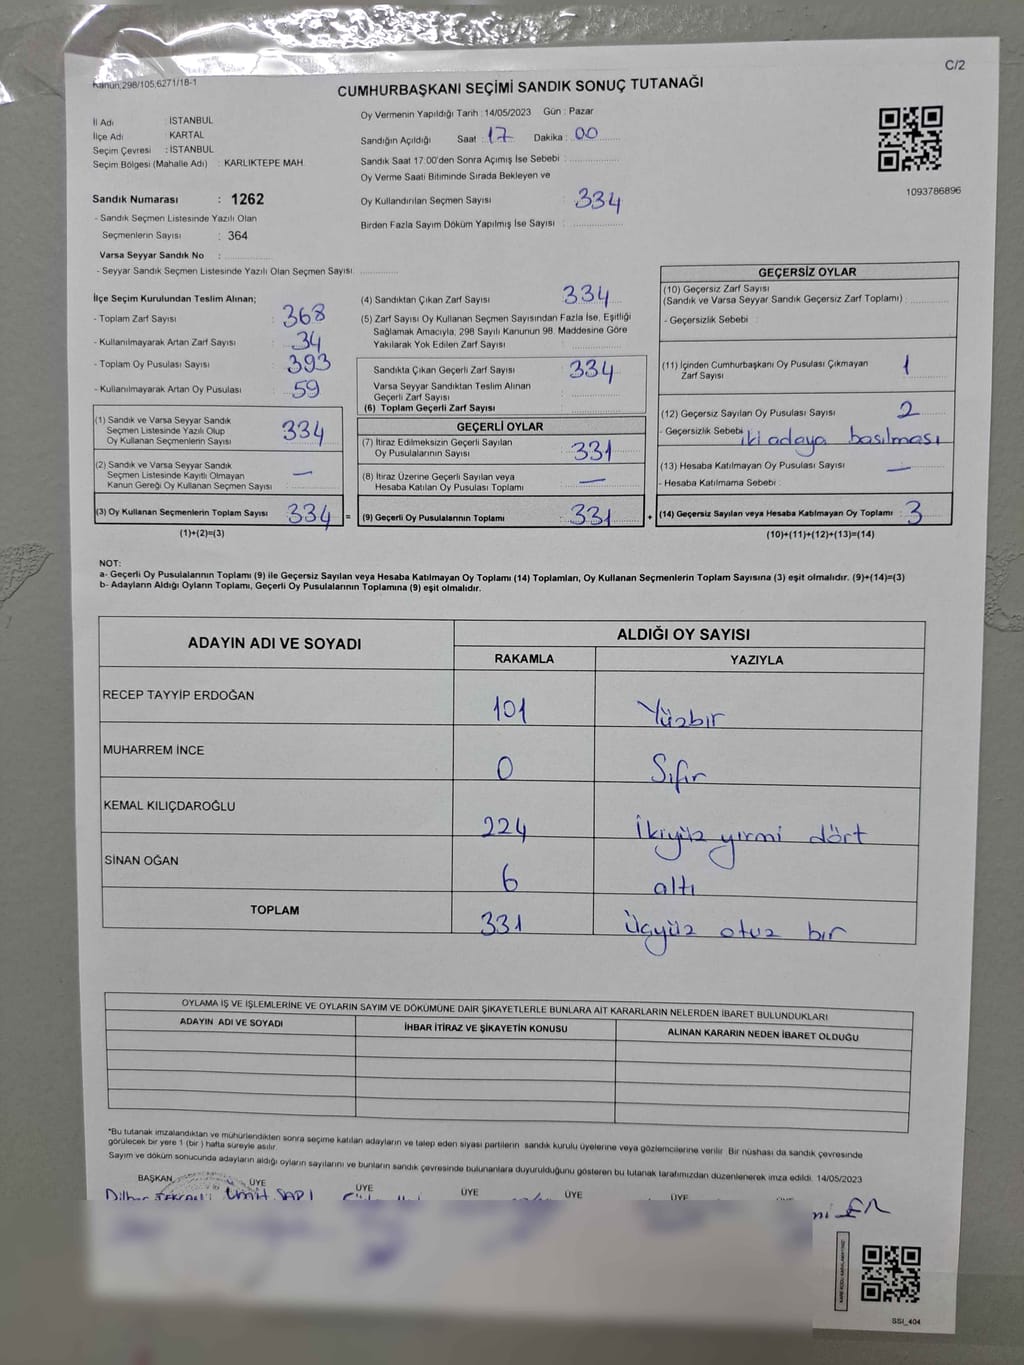 C/2
Kanun;298/105,6271/18-1
CUMHURBAŞKANI SEÇİMİ SANDIK SONUÇ TUTANAĞI
İl Adı : İSTANBUL
İlçe Adı : KARTAL
Seçim Çevresi : İSTANBUL
Seçim Bölgesi (Mahalle Adı) : KARLIKTEPE MAH.
Sandık Numarası : 1262
- Sandık Seçmen Listesinde Yazılı Olan
Seçmenlerin Sayısı : 364
Varsa Seyyar Sandık No :
- Seyyar Sandık Seçmen Listesinde Yazılı Olan Seçmen Sayısı:
Oy Vermenin Yapıldığı Tarih : 14/05/2023 Gün : Pazar
Sandığın Açıldığı Saat : 17 Dakika : 00
Sandık Saat 17:00'den Sonra Açımış İse Sebebi :
Oy Verme Saati Bitiminde Sırada Bekleyen ve
Oy Kullandırılan Seçmen Sayısı : 334
Birden Fazla Sayım Döküm Yapılmış İse Sayısı :
1093786896
İlçe Seçim Kurulundan Teslim Alınan;
- Toplam Zarf Sayısı : 368
- Kullanılmayarak Artan Zarf Sayısı : 34
- Toplam Oy Pusulası Sayısı : 393
- Kullanılmayarak Artan Oy Pusulası : 59
(1) Sandık ve Varsa Seyyar Sandık
Seçmen Listesinde Yazılı Olup
Oy Kullanan Seçmenlerin Sayısı : 334
(2) Sandık ve Varsa Seyyar Sandık
Seçmen Listesinde Kayıtlı Olmayan
Kanun Gereği Oy Kullanan Seçmen Sayısı : —
(3) Oy Kullanan Seçmenlerin Toplam Sayısı : 334 =
(1)+(2)=(3)
(4) Sandıktan Çıkan Zarf Sayısı : 334
(5) Zarf Sayısı Oy Kullanan Seçmen Sayısından Fazla İse, Eşitliği
Sağlamak Amacıyla, 298 Sayılı Kanunun 98. Maddesine Göre
Yakılarak Yok Edilen Zarf Sayısı :
Sandıkta Çıkan Geçerli Zarf Sayısı : 334
Varsa Seyyar Sandıktan Teslim Alınan
Geçerli Zarf Sayısı :
(6) Toplam Geçerli Zarf Sayısı :
GEÇERLİ OYLAR
(7) İtiraz Edilmeksizin Geçerli Sayılan
Oy Pusulalarının Sayısı : 331
(8) İtiraz Üzerine Geçerli Sayılan veya
Hesaba Katılan Oy Pusulası Toplamı : —
(9) Geçerli Oy Pusulalarının Toplamı : 331 +
GEÇERSİZ OYLAR
(10) Geçersiz Zarf Sayısı
(Sandık ve Varsa Seyyar Sandık Geçersiz Zarf Toplamı) :
- Geçersizlik Sebebi :
(11) İçinden Cumhurbaşkanı Oy Pusulası Çıkmayan
Zarf Sayısı : 1
(12) Geçersiz Sayılan Oy Pusulası Sayısı : 2
- Geçersizlik Sebebi : iki adaya basılması
(13) Hesaba Katılmayan Oy Pusulası Sayısı : —
- Hesaba Katılmama Sebebi :
(14) Geçersiz Sayılan veya Hesaba Katılmayan Oy Toplamı : 3
(10)+(11)+(12)+(13)=(14)
NOT:
a- Geçerli Oy Pusulalarının Toplamı (9) ile Geçersiz Sayılan veya Hesaba Katılmayan Oy Toplamı (14) Toplamları, Oy Kullanan Seçmenlerin Toplam Sayısına (3) eşit olmalıdır. (9)+(14)=(3)
b- Adayların Aldığı Oyların Toplamı, Geçerli Oy Pusulalarının Toplamına (9) eşit olmalıdır.
ADAYIN ADI VE SOYADI
ALDIĞI OY SAYISI
RAKAMLA YAZIYLA
RECEP TAYYİP ERDOĞAN 101 Yüzbir
MUHARREM İNCE 0 Sıfır
KEMAL KILIÇDAROĞLU 224 İkiyüz yirmi dört
SİNAN OĞAN 6 altı
TOPLAM 331 Üçyüz otuz bir
OYLAMA İŞ VE İŞLEMLERİNE VE OYLARIN SAYIM VE DÖKÜMÜNE DAİR ŞİKAYETLERLE BUNLARA AİT KARARLARIN NELERDEN İBARET BULUNDUKLARI
ADAYIN ADI VE SOYADI İHBAR İTİRAZ VE ŞİKAYETİN KONUSU ALINAN KARARIN NEDEN İBARET OLDUĞU
*Bu tutanak imzalandıktan ve mühürlendikten sonra seçime katılan adayların ve talep eden siyasi partilerin sandık kurulu üyelerine veya gözlemcilerine verilir. Bir nüshası da sandık çevresinde
görülecek bir yere 1 (bir) hafta süreyle asılır.
Sayım ve döküm sonucunda adayların aldığı oyların sayılarını ve bunların sandık çevresinde bulunanlara duyurulduğunu gösteren bu tutanak tarafımızdan düzenlenerek imza edildi. 14/05/2023
BAŞKAN ÜYE ÜYE ÜYE ÜYE ÜYE
Ümit SARI
SSI_404